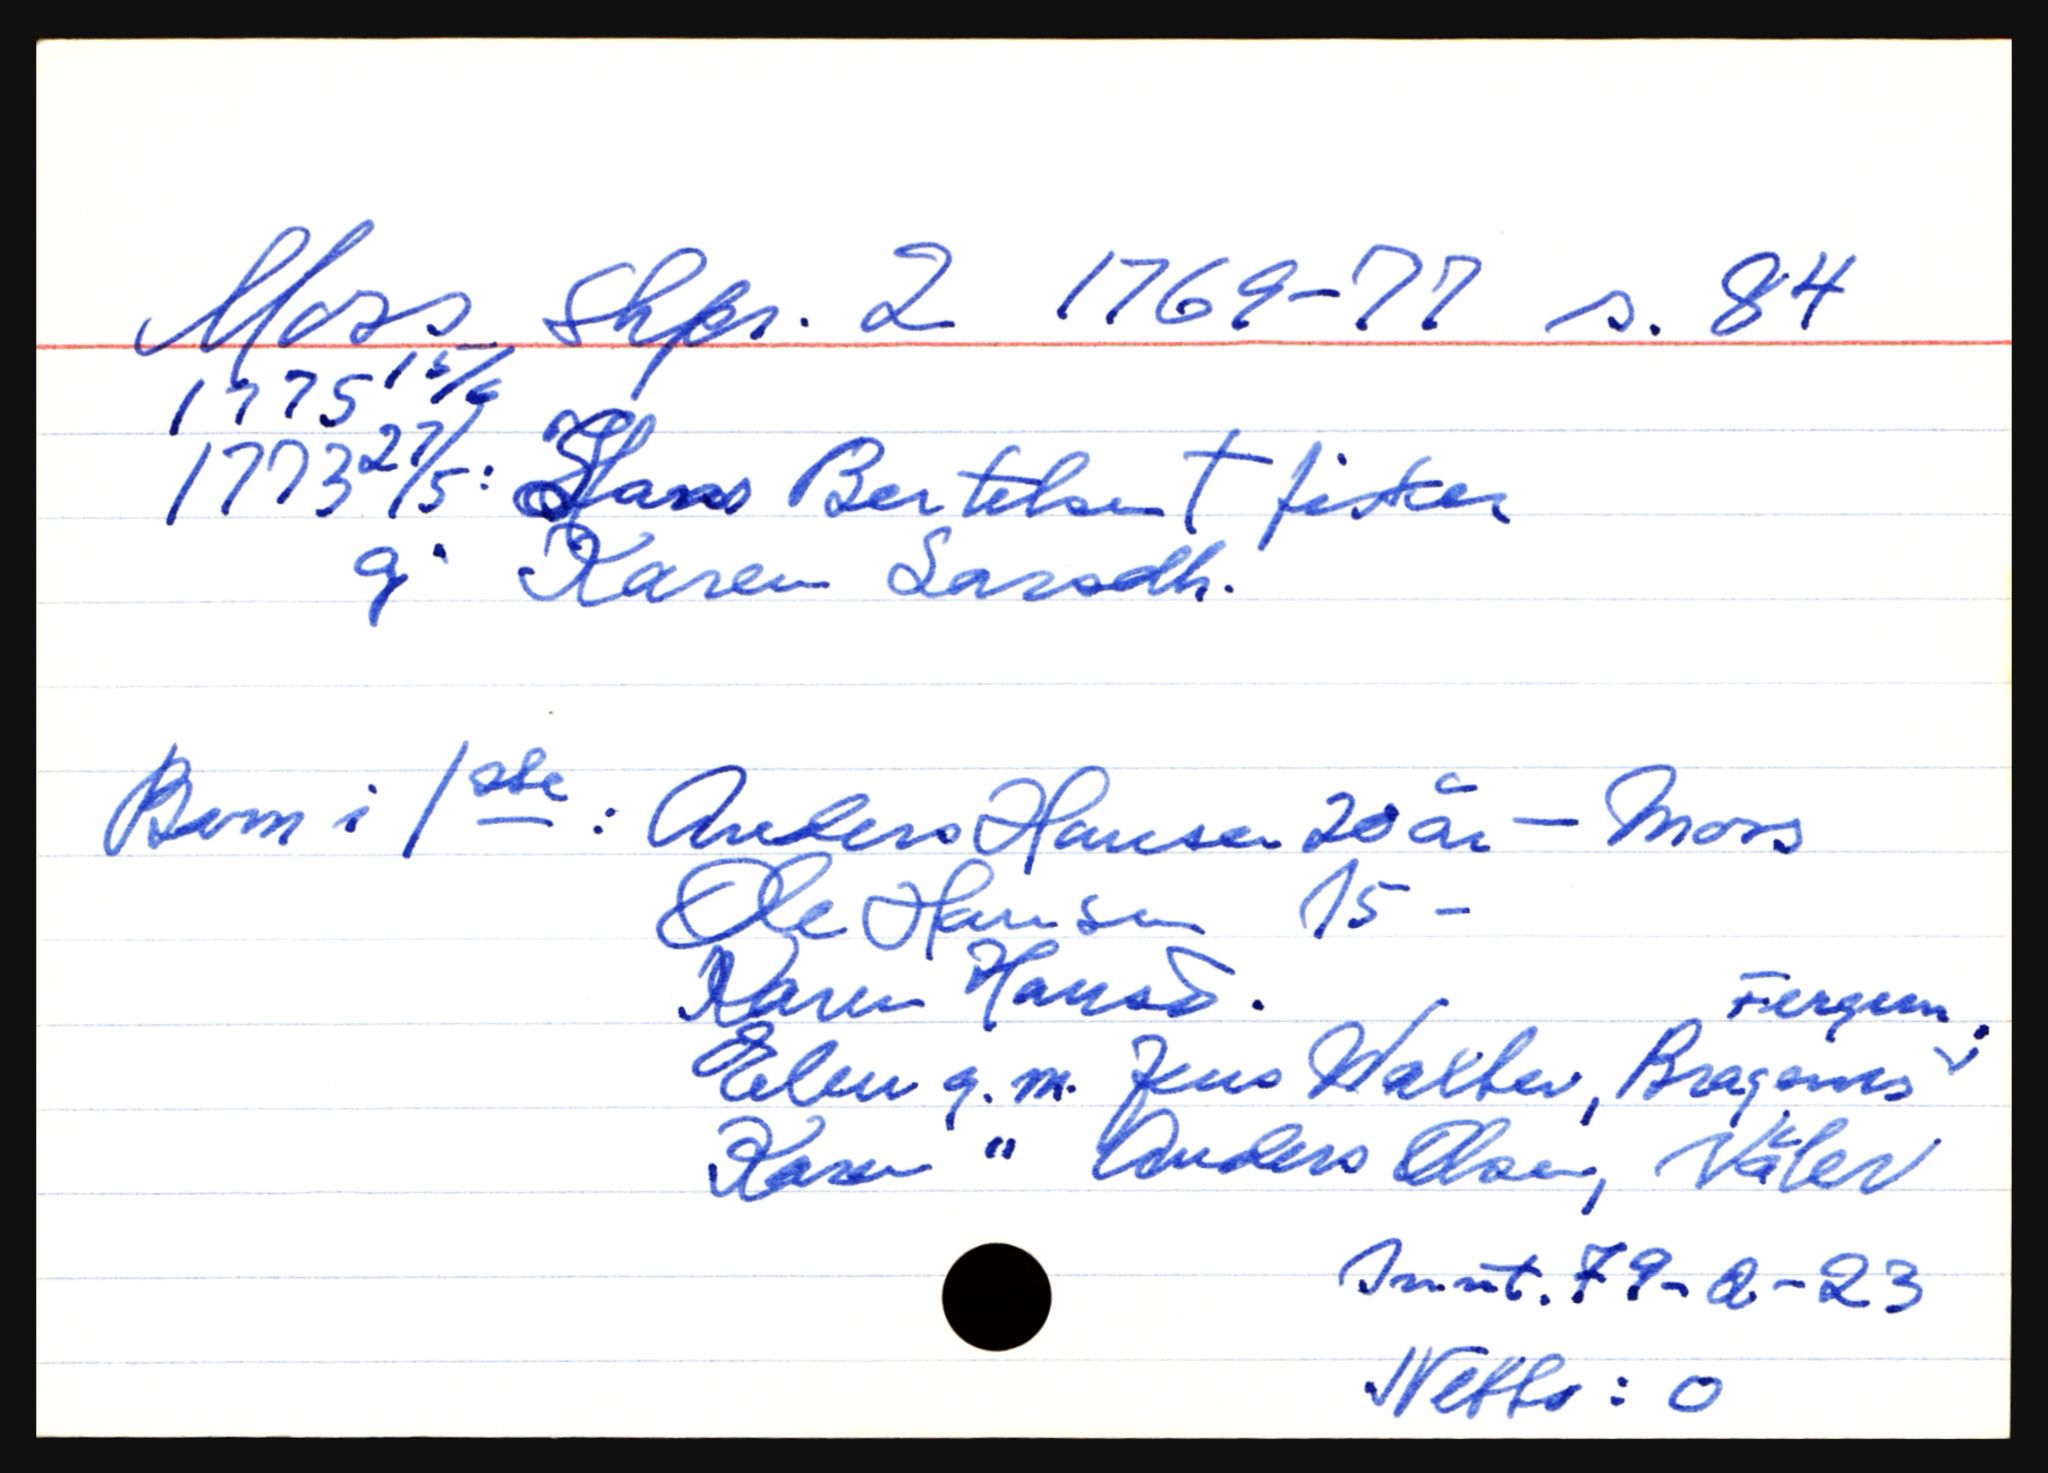 Moss Skpr. 2 1769-77 s. 84
1775 15/6
1773 27/5: Hans Bertelsen † fisker
g. Karen Larsdh.
Barn i 1ste: Anders Hansen 20 år — Moss
Ole Hansen 15 -
Karen Hansd.
Fergem.
Elen g.m. Jens Walter, Bragernes
Karen " Anders Olsen, Våler
Innt. 79-2-23
Netto: 0